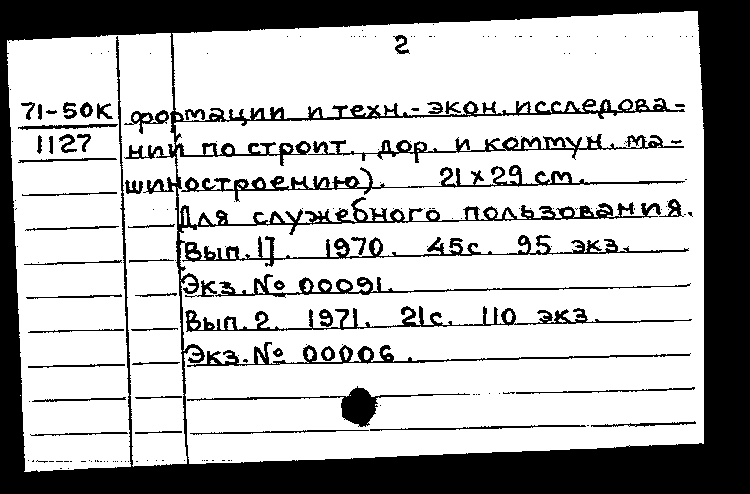 2
71-50К формации и техн.-экон. исследова-
1127 ний по строит., дор. и коммун. ма-
шиностроению). 21×29 см.
Для служебного пользования.
[Вып.1]. 1970. 45с. 95 экз.
Экз.№ 00091.
Вып.2. 1971. 21с. 110 экз.
Экз.№ 00006.